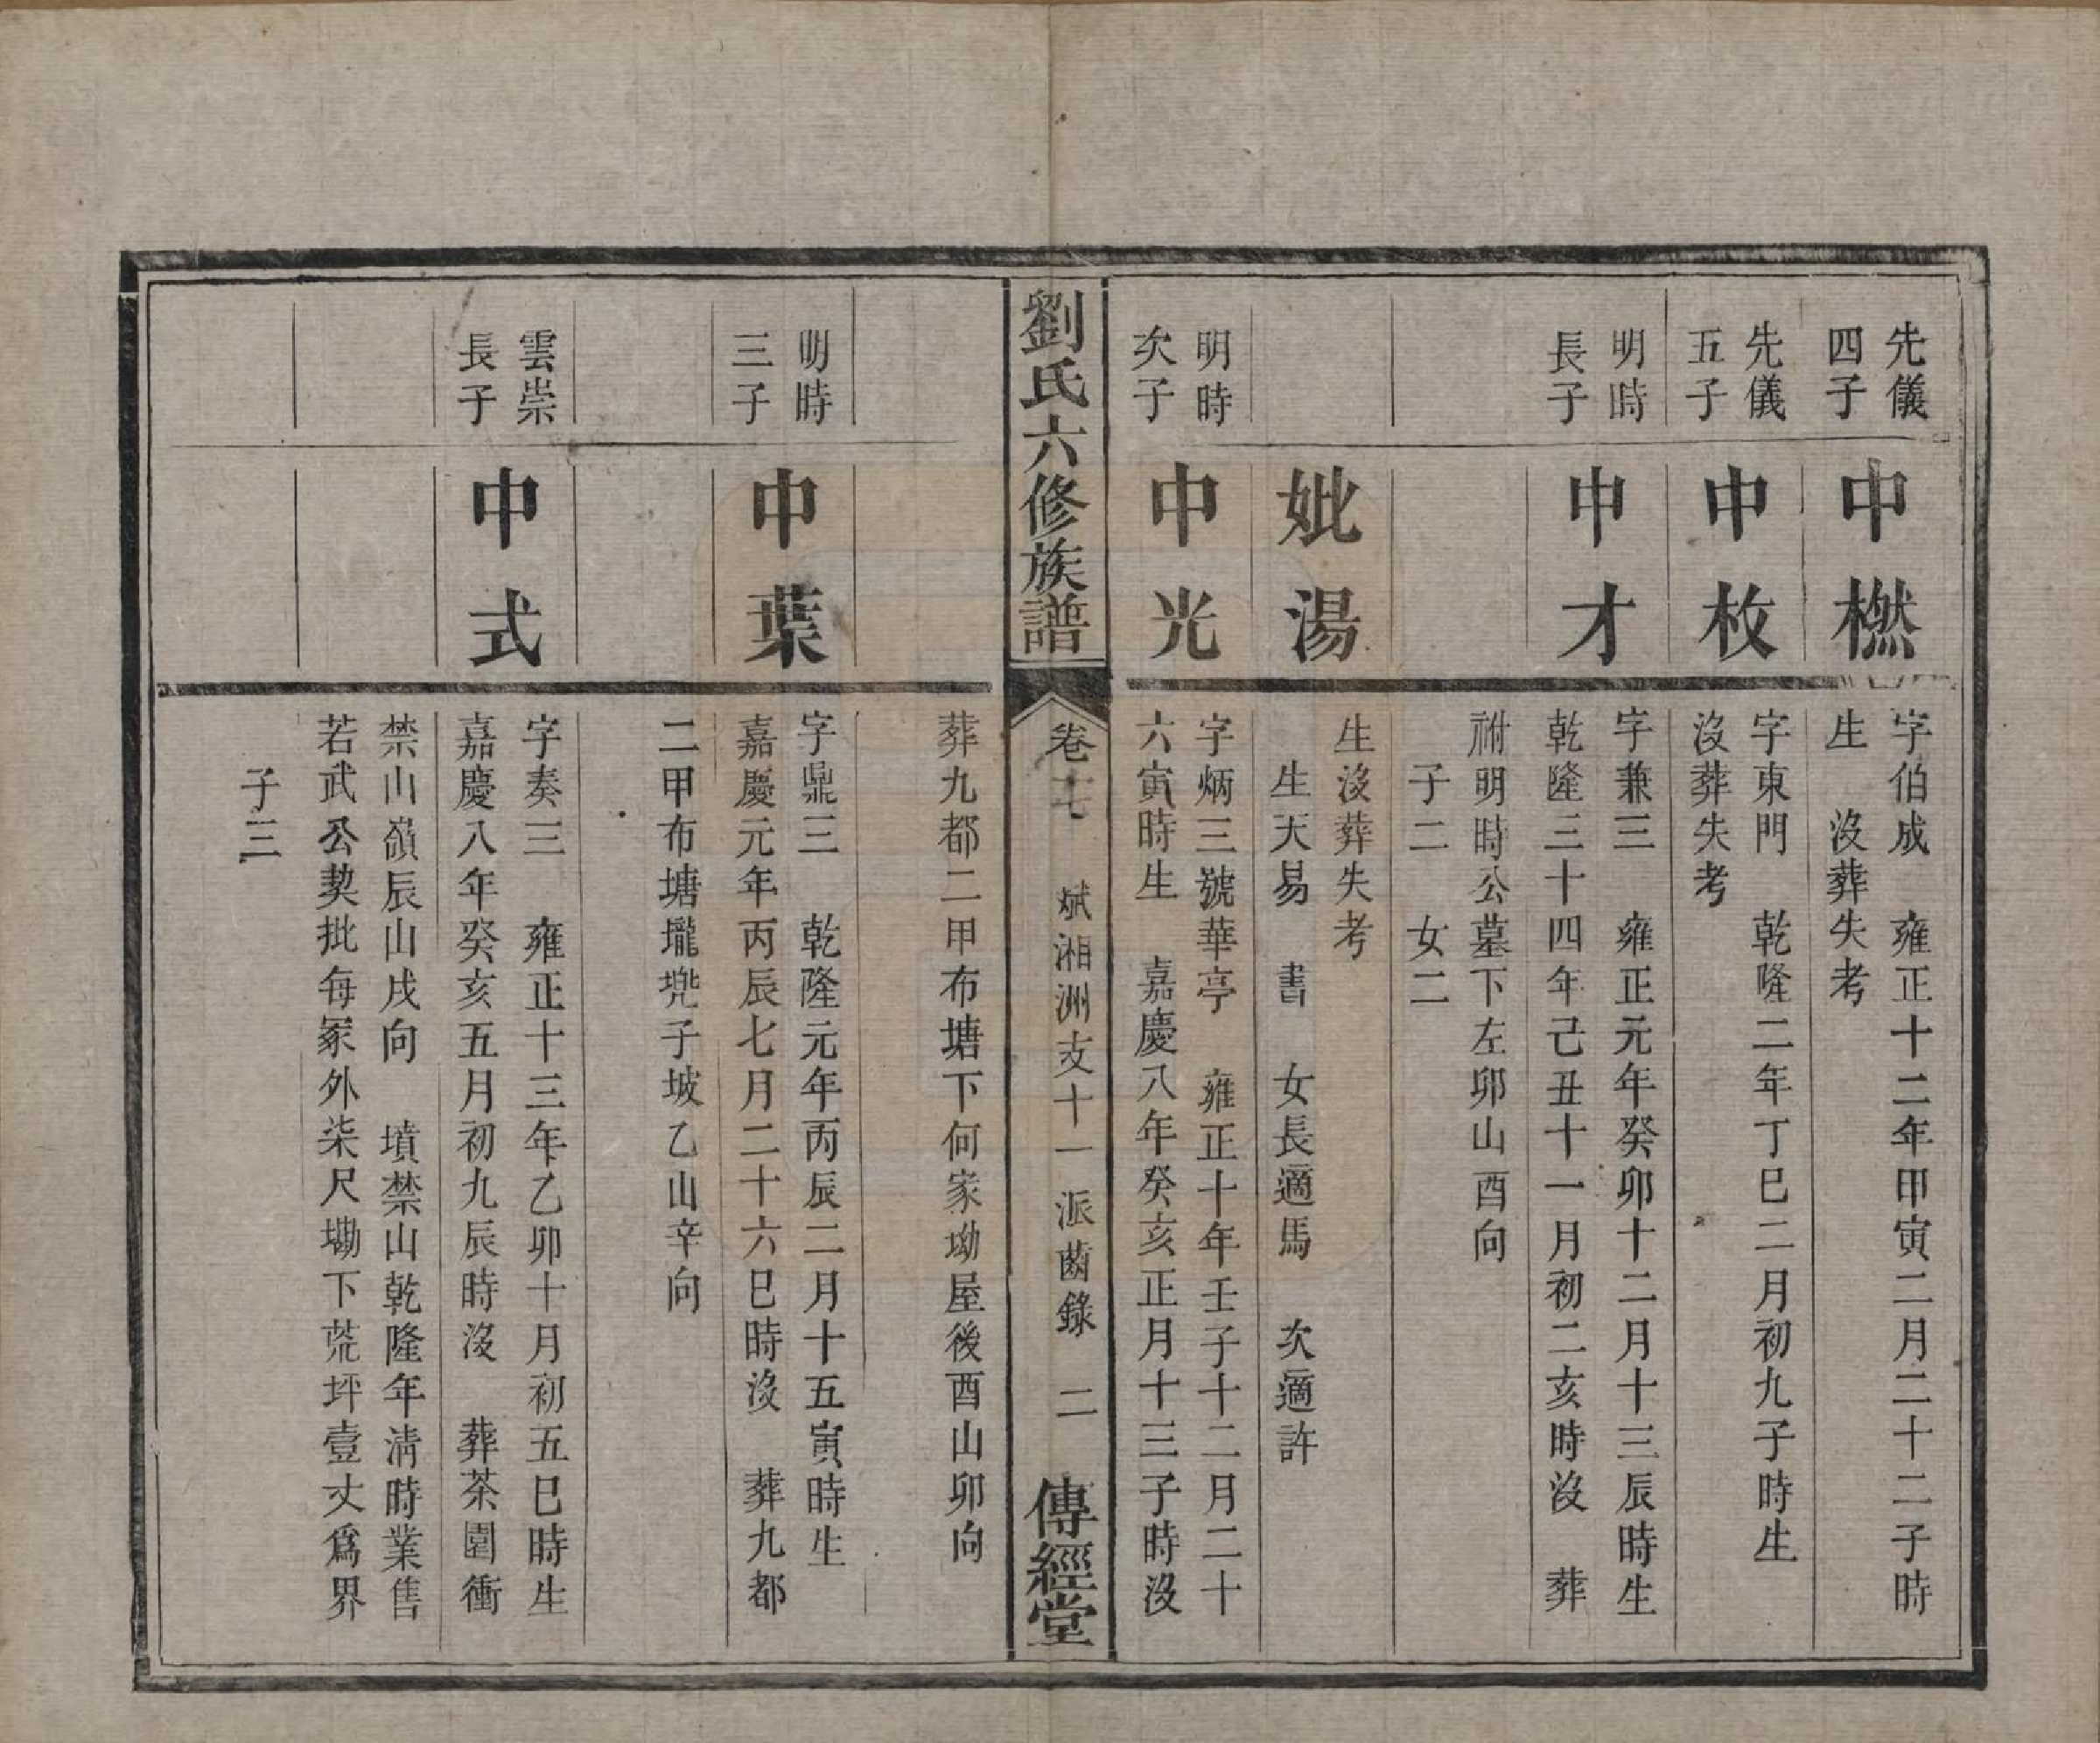 先儀
四子
中橪
字伯成　雍正十二年甲寅二月二十二子時
生　沒葬失考
先儀
五子
中枚
字東門　乾隆二年丁巳二月初九子時生
沒葬失考
明時
長子
中才
字兼三　雍正元年癸卯十二月十三辰時生
乾隆三十四年己丑十一月初二亥時沒　葬
祔明時公墓下左卯山酉向
子二　女二
妣湯
生沒葬失考
生天易　書　女長適馬　次適許
明時
次子
中光
字炳三號華亭　雍正十年壬子十二月二十
六寅時生　嘉慶八年癸亥正月十三子時沒
劉氏六修族譜
卷十七　斌湘洲支十一派齒錄　二
傳經堂
葬九都二甲布塘下何家坳屋後酉山卯向
明時
三子
中葉
字鼎三　乾隆元年丙辰二月十五寅時生
嘉慶元年丙辰七月二十六巳時沒　葬九都
二甲布塘壠兠子坡乙山辛向
雲崇
長子
中式
字奏三　雍正十三年乙卯十月初五巳時生
嘉慶八年癸亥五月初九辰時沒　葬茶園衝
禁山嶺辰山戌向　墳禁山乾隆年淸時業售
若武公契批每冢外柒尺墈下荒坪壹丈爲界
子三